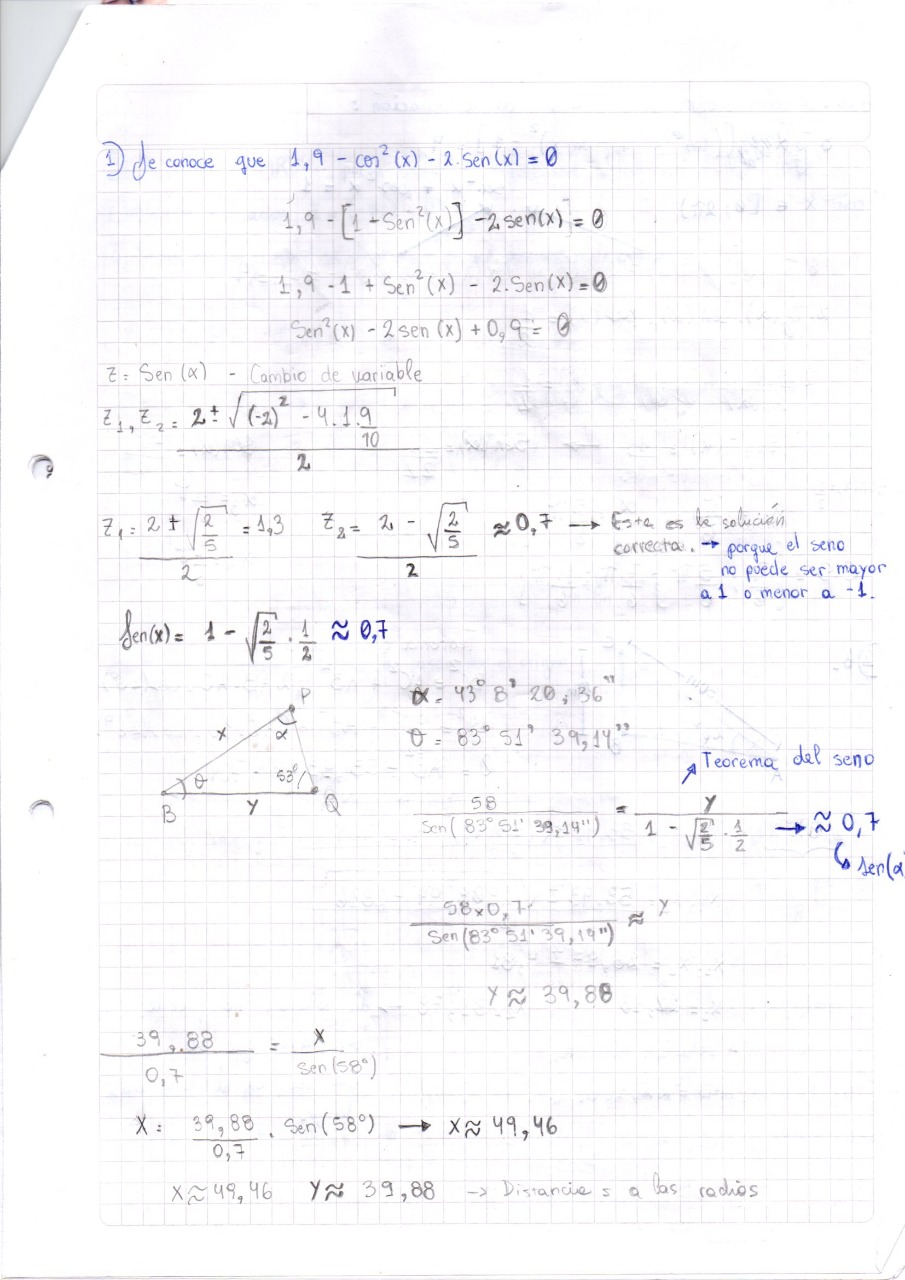 1) Se conoce que 1,9 - cos²(x) - 2.Sen(x) = 0
1,9 - [1 + Sen²(x)] - 2 sen(x) = 0
1,9 - 1 + Sen²(x) - 2.Sen(x) = 0
Sen²(x) - 2 sen(x) + 0,9 = 0
Z = Sen(α) - Cambio de variable
Z₁, Z₂ = (2 ± √((-2)² - 4.1.9/10)) / 2
Z₁ = (2 + √(2/5)) / 2 = 1,3 Z₂ = (2 - √(2/5)) / 2 ≈ 0,7 → Esta es la solución
correcta. → porque el seno
no puede ser mayor
a 1 o menor a -1.
Sen(x) = 1 - √(2/5) . 1/2 ≈ 0,7
P
α = 43° 8' 20,36"
x α
θ = 83° 51' 39,14"
θ 53°
B Y Q
Teorema del seno
58 / Sen(83° 51' 39,14") = Y / (1 - √(2/5) . 1/2) → ≈ 0,7
Sen(α
58 x 0,7 / Sen(83° 51' 39,14") ≈ Y
Y ≈ 39,88
39,88 / 0,7 = X / Sen(58°)
X = 39,88 / 0,7 . Sen(58°) → X ≈ 49,46
X ≈ 49,46 Y ≈ 39,88 → Distancias a las radios